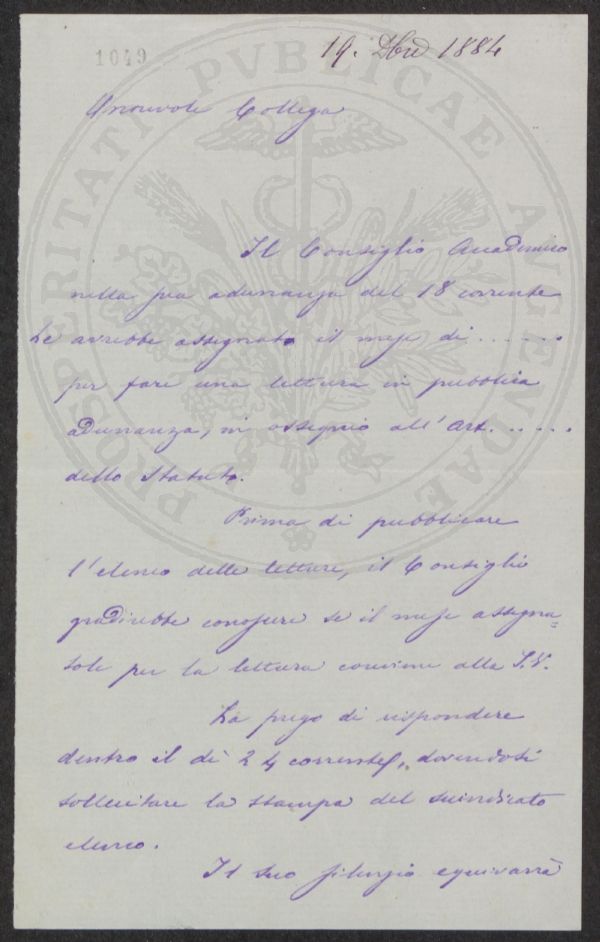 1049
19. Dbre 1884
Onorevole Collega
Il Consiglio Accademico
nella sua adunanza del 18 corrente
Le avrebbe assegnato il mese di .......
per fare una lettura in pubblica
adunanza, in ossequio all'Art. .....
dello Statuto.
Prima di pubblicare
l'elenco delle letture, il Consiglio
gradirebbe conoscere se il mese assegna=
tole per la lettura conviene alla S.V.
La prego di rispondere
dentro il dì 24 corrente, dovendosi
sollecitare la stampa del suindicato
elenco.
Il suo silenzio equivarrà
PROSPERITATI PVBLICAE AVGENDAE